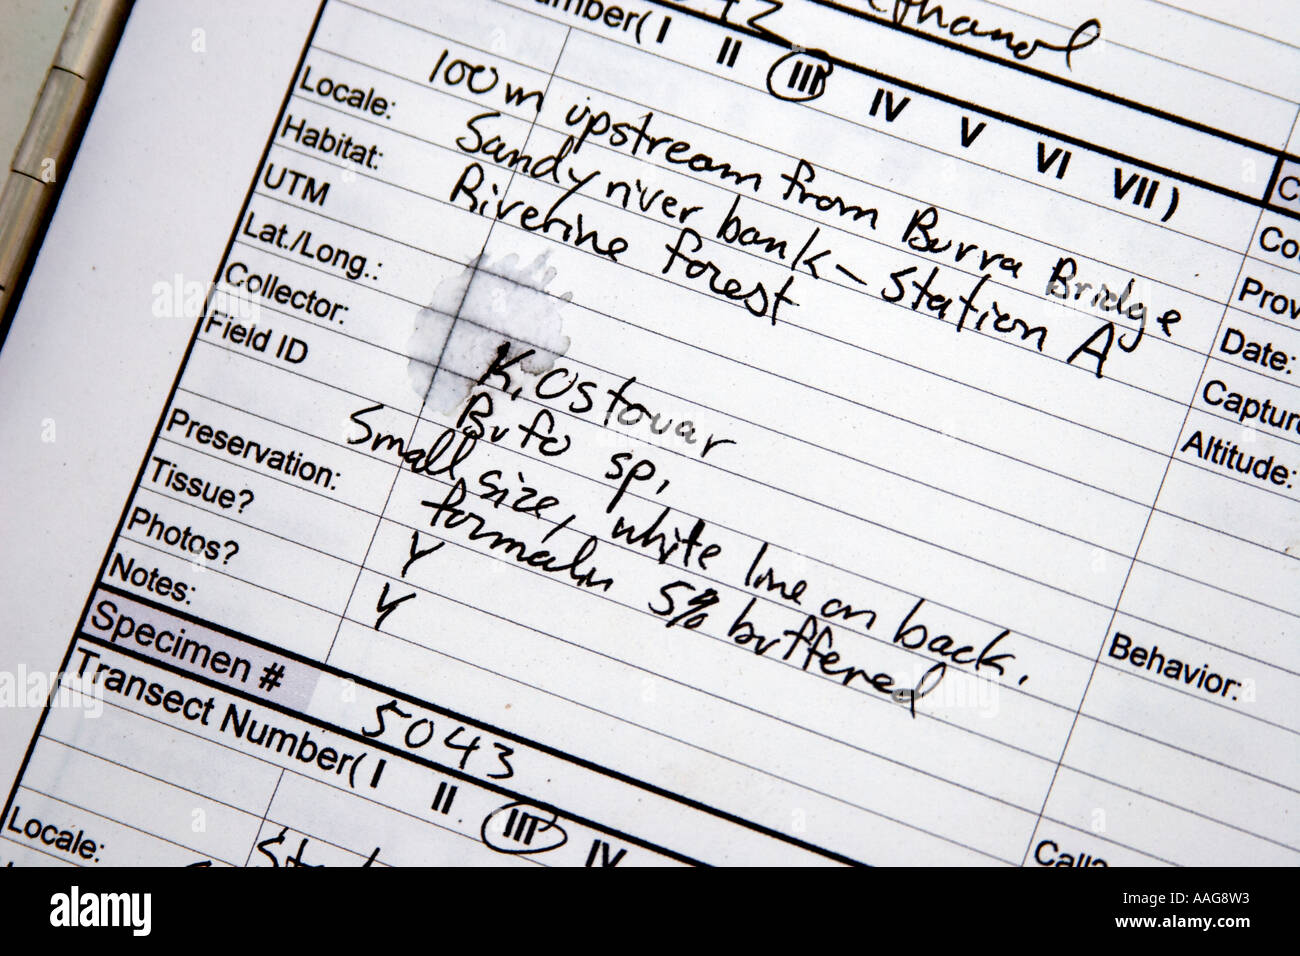 Ethanol
Number( I II III IV V VI VII )
100m upstream from Burra Bridge
Locale: Sandy river bank - Station A
Habitat: Riverine forest
UTM
Lat./Long.:
Collector: K. Ostovar
Field ID Bufo sp.
Small size, white line on back.
Preservation: formalin 5% buffered
Tissue? Y
Photos? Y
Notes:
Date:
Capture
Altitude:
Behavior:
Specimen # 5043
Transect Number( I II III IV
Call?
Locale:
alamy
Image ID: AAG8W3
www.alamy.com